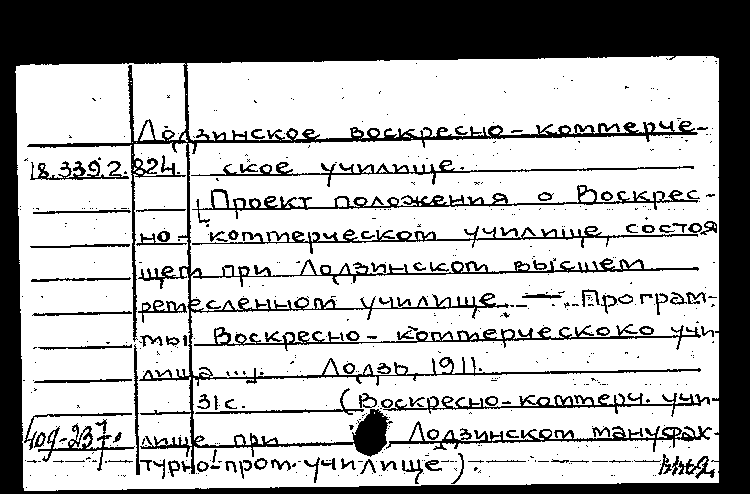 Лодзинское воскресно-коммерче-
18.339.2.824. ское училище.
[Проект положения о Воскрес-
но-коммерческом училище, состоя
щем при Лодзинском высшем
ремесленном училище. — Програм-
мы Воскресно-коммерческоко учи-
лища ...]. Лодзь, 1911.
31с. (Воскресно-коммерч. учи-
409-237. лище при Лодзинском мануфак-
турно-пром. училище).